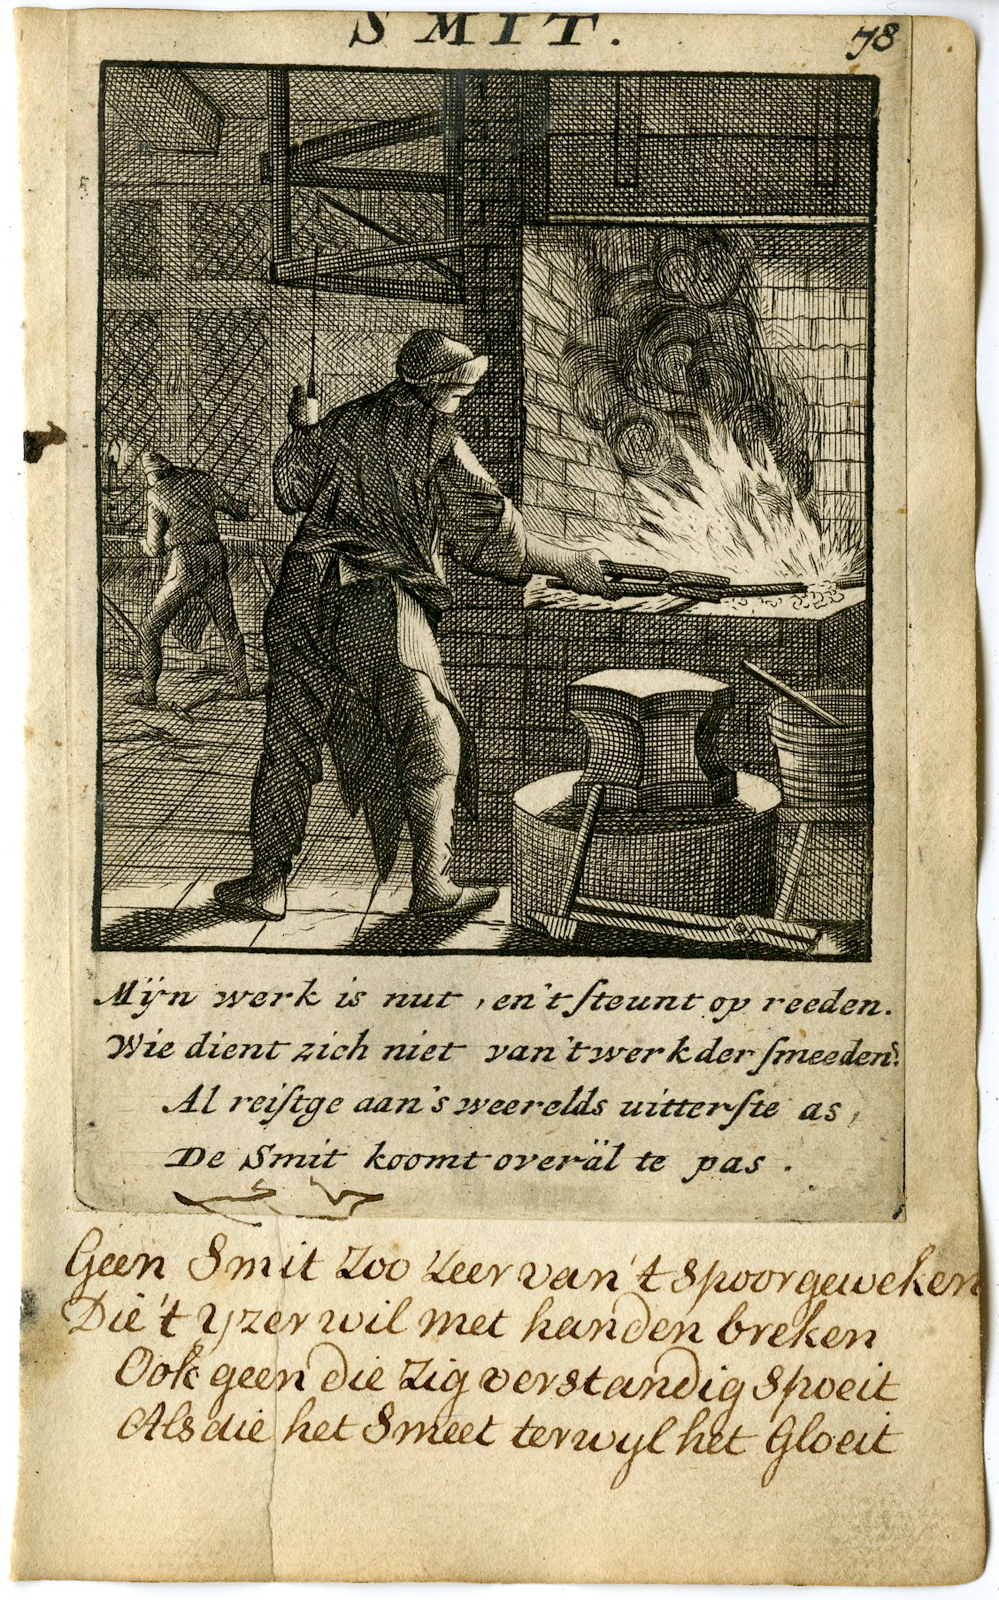 SMIT.
78
Mijn werk is nut, en't ſteunt op reeden.
Wie dient zich niet van't werk der ſmeeden?
Al reiſtge aan's weerelds uitterſte as,
De Smit koomt overäl te pas.
Geen Smit Zoo Zeer van't Spoor geweken
Die't yzer wil met handen breken
Ook geen die Zig verstandig Spoeit
Als die het Smeet terwyl het Gloeit